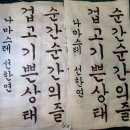 순간순간의즐
겁고기쁜상태
나마스테 선한연
순간순간의즐
겁고기쁜상태
나마스테 선한연